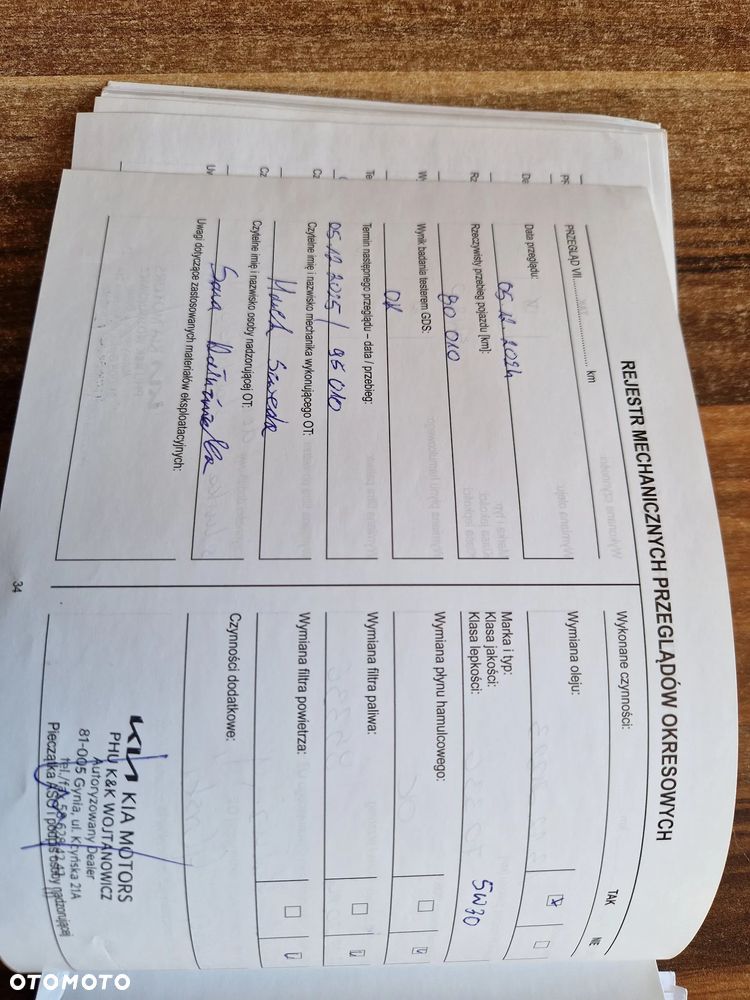 REJESTR MECHANICZNYCH PRZEGLĄDÓW OKRESOWYCH
PRZEGLĄD VII. km
Data przeglądu:
05.12.2024
Rzeczywisty przebieg pojazdu [km]:
80 010
Wynik badania testerem GDS:
OK
Termin następnego przeglądu – data / przebieg:
05.12.2025 / 95 010
Czytelne imię i nazwisko mechanika wykonującego OT:
Czytelne imię i nazwisko osoby nadzorującej OT:
Uwagi dotyczące zastosowanych materiałów eksploatacyjnych:
Wykonane czynności: TAK NIE
Wymiana oleju:
Marka i typ:
Klasa jakości:
Klasa lepkości: 5W30
Wymiana płynu hamulcowego:
Wymiana filtra paliwa:
Wymiana filtra powietrza:
Czynności dodatkowe:
KIA KIA MOTORS
PHU K&K WOJTANOWICZ
Autoryzowany Dealer
81-005 Gynia, ul. 21A
tel./fax 58
Pieczątka ASO i podpis osoby nadzorującej
34
OTOMOTO